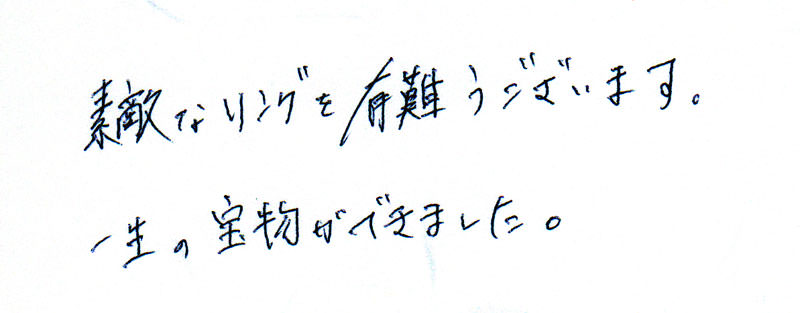 素敵なリングを有難うございます。
一生の宝物ができました。